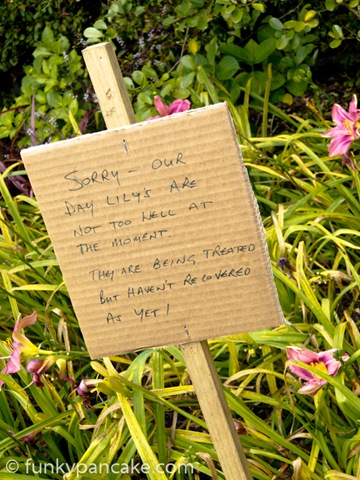 SORRY – OUR
DAY LILY'S ARE
NOT TOO WELL AT
THE MOMENT.
THEY ARE BEING TREATED
BUT HAVEN'T RECOVERED
AS YET!
© funkypancake.com